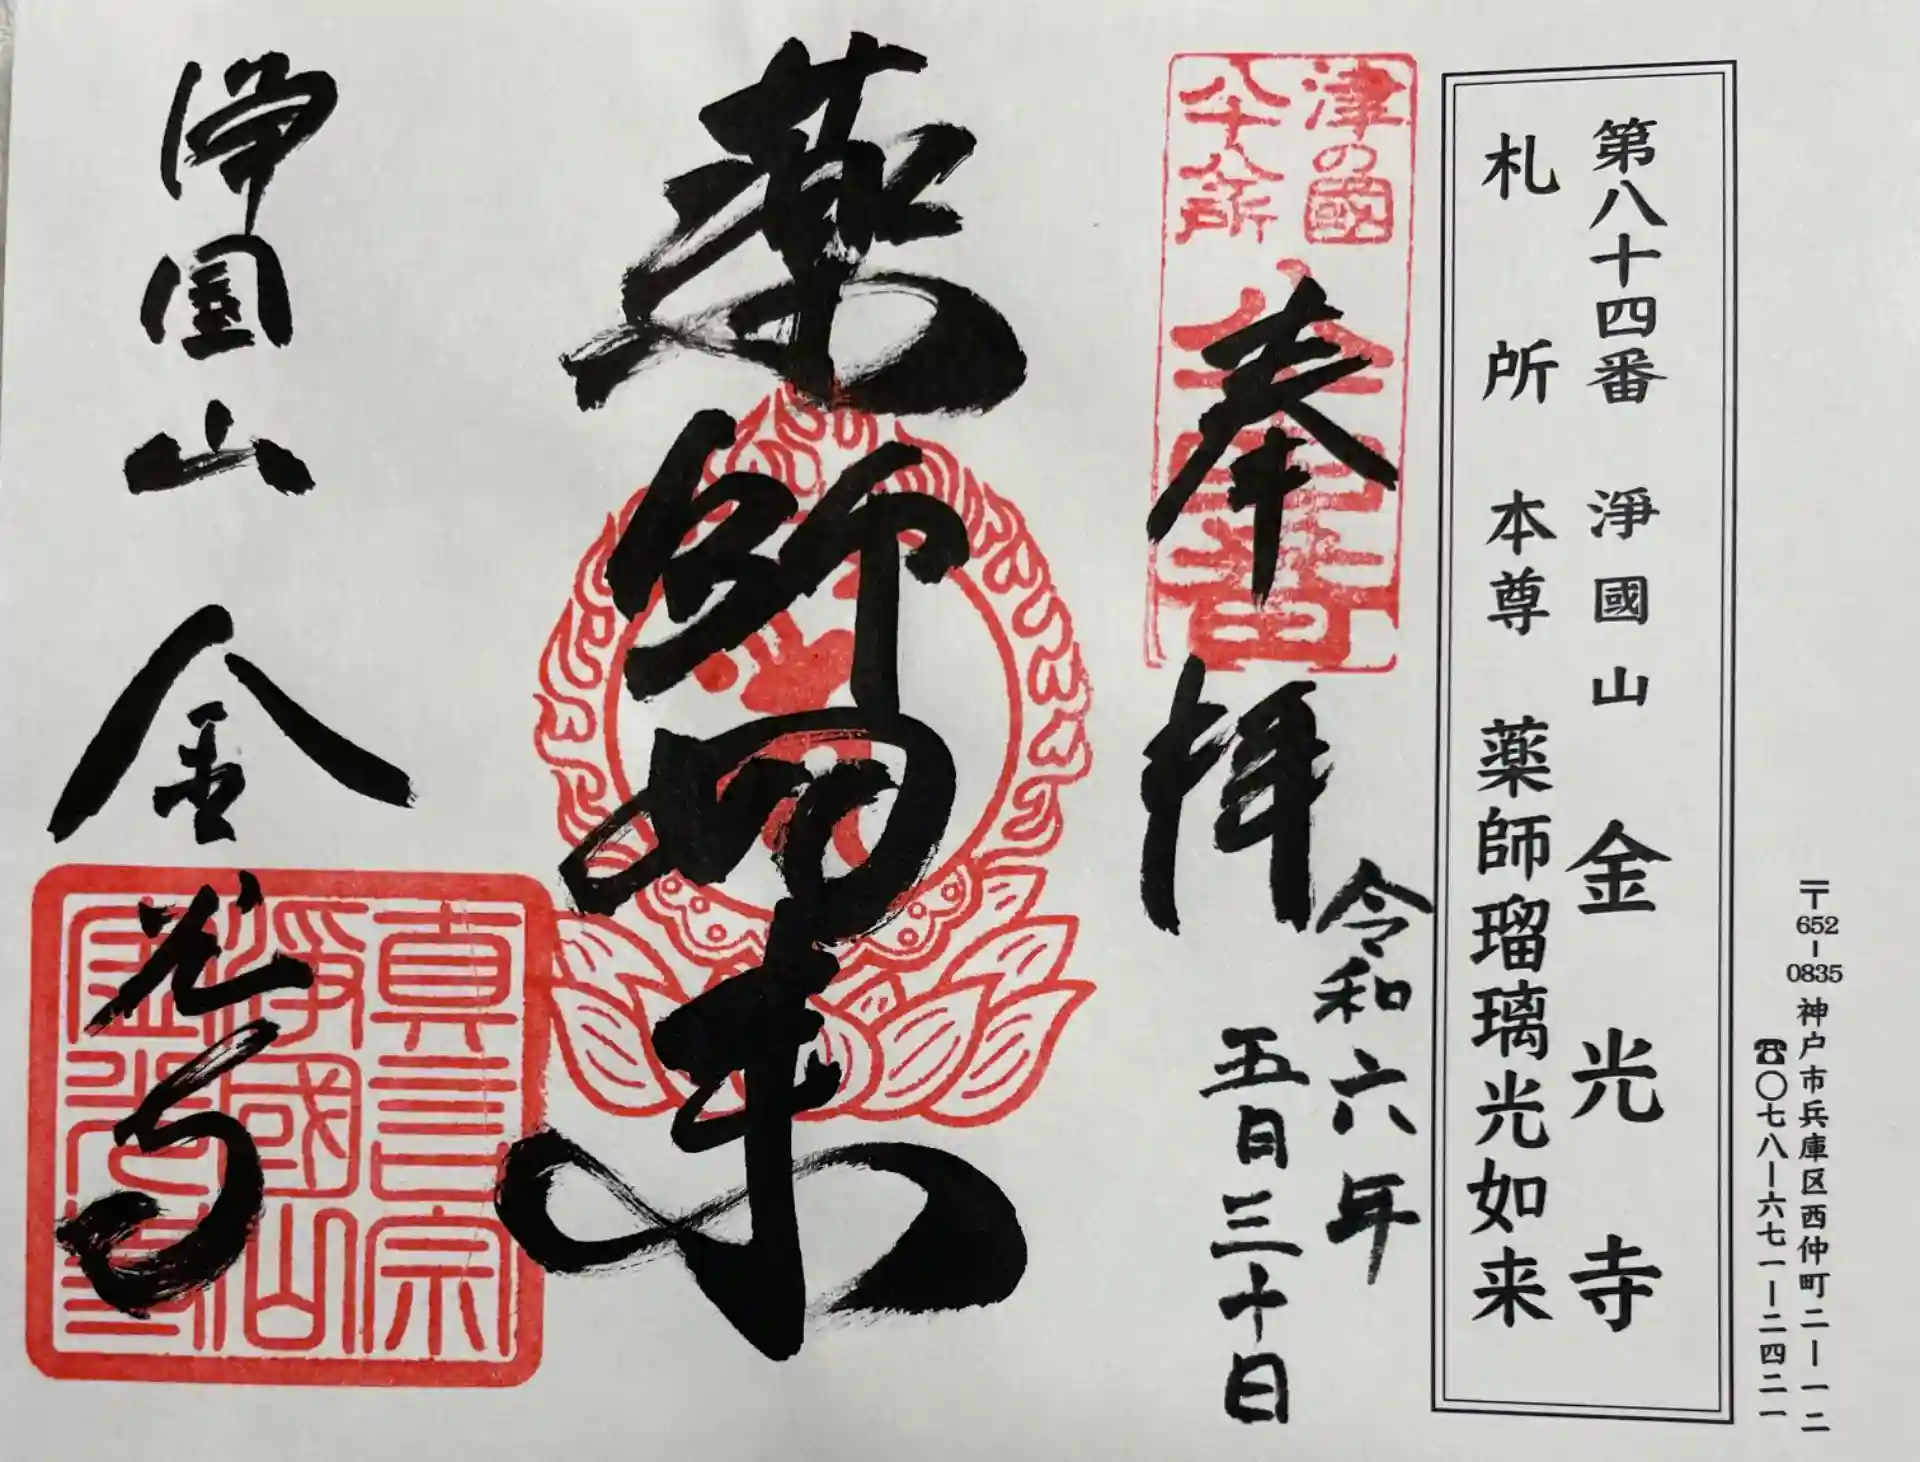 〒652-0835 神戸市兵庫区西仲町二ー一二
☎〇七八ー六七一ー二四二一
第八十四番 淨國山 金光寺
札所本尊 薬師瑠璃光如来
津の國
八十八所
奉拝
令和六年
五月三十日
薬師如来
浄国山 金光寺
真言宗
淨國山
金光寺